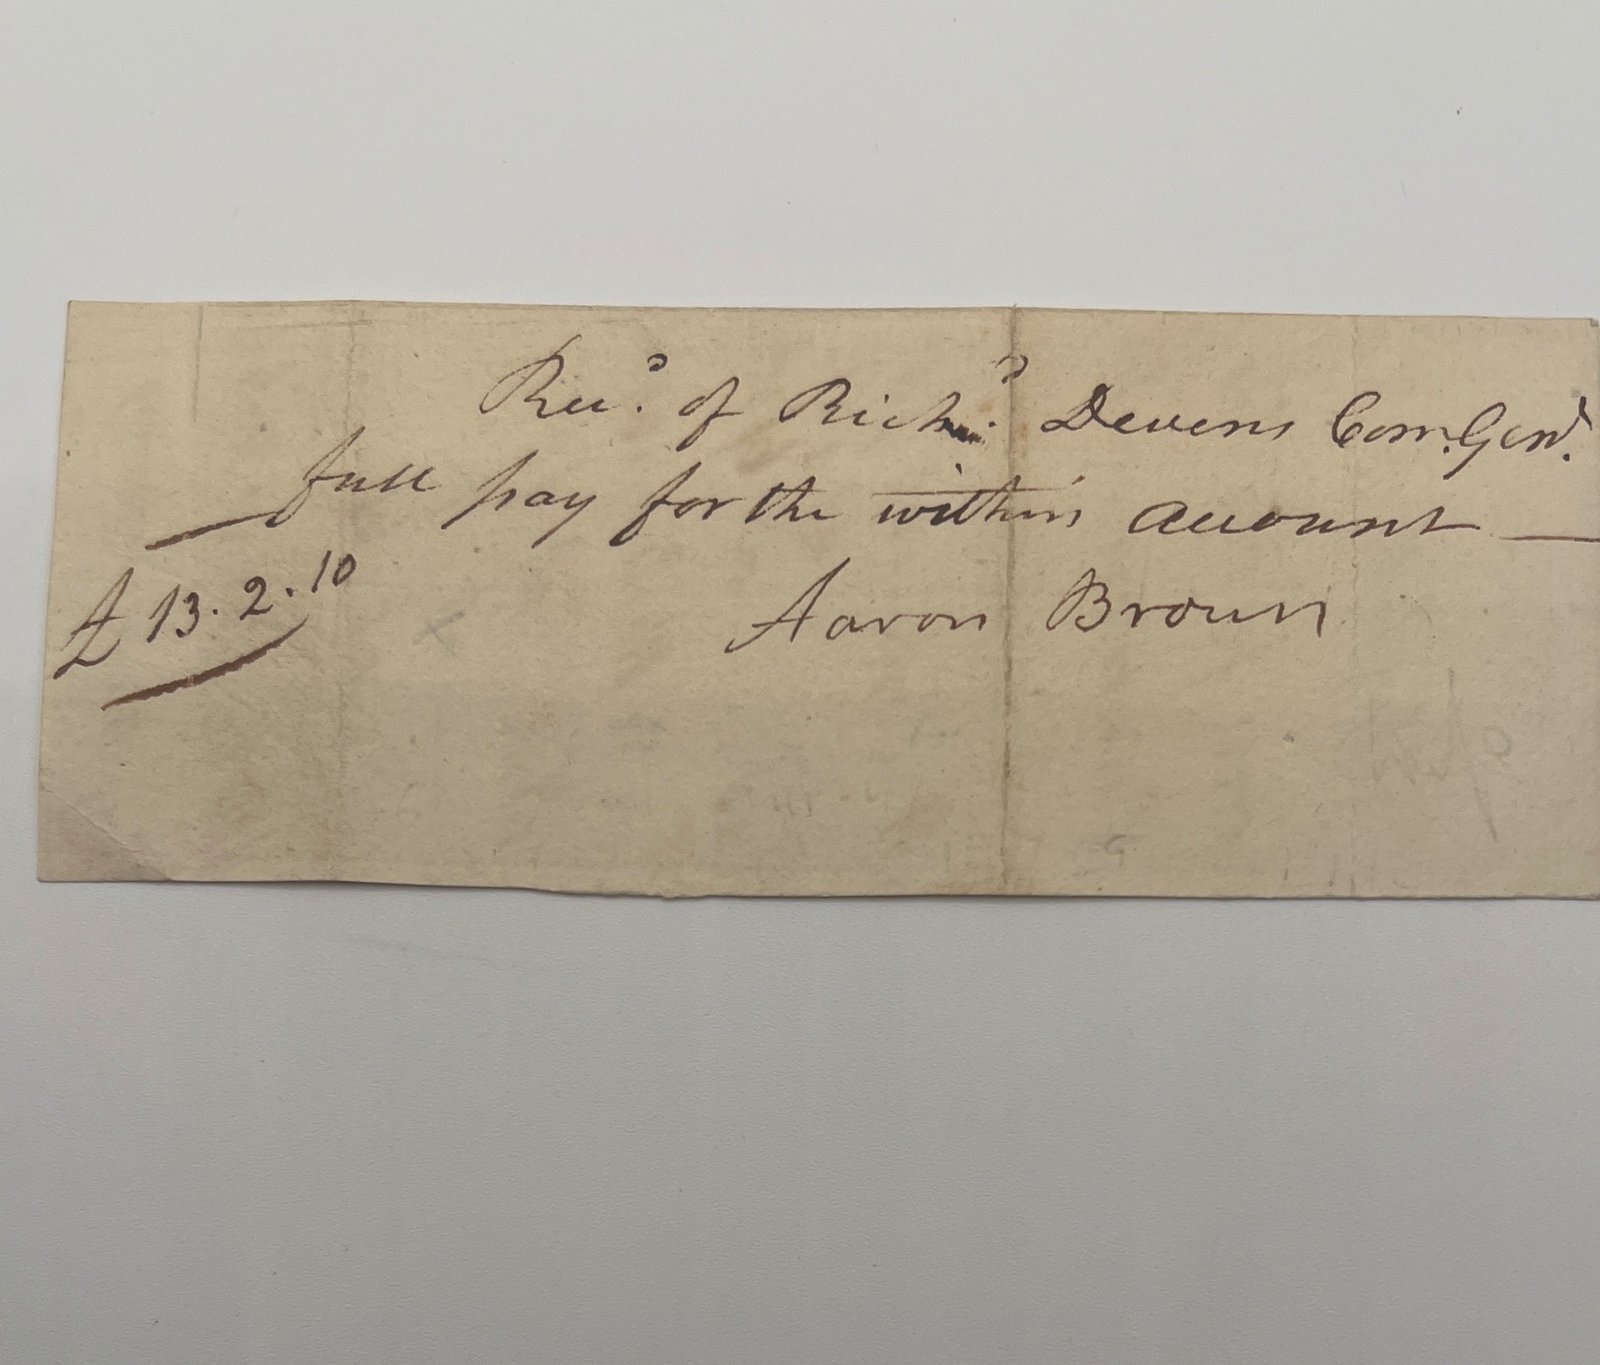 Rec.d of Rich.d Devens Com.Genl.
full pay for the within account —
£ 13.2.10
Aaron Brown